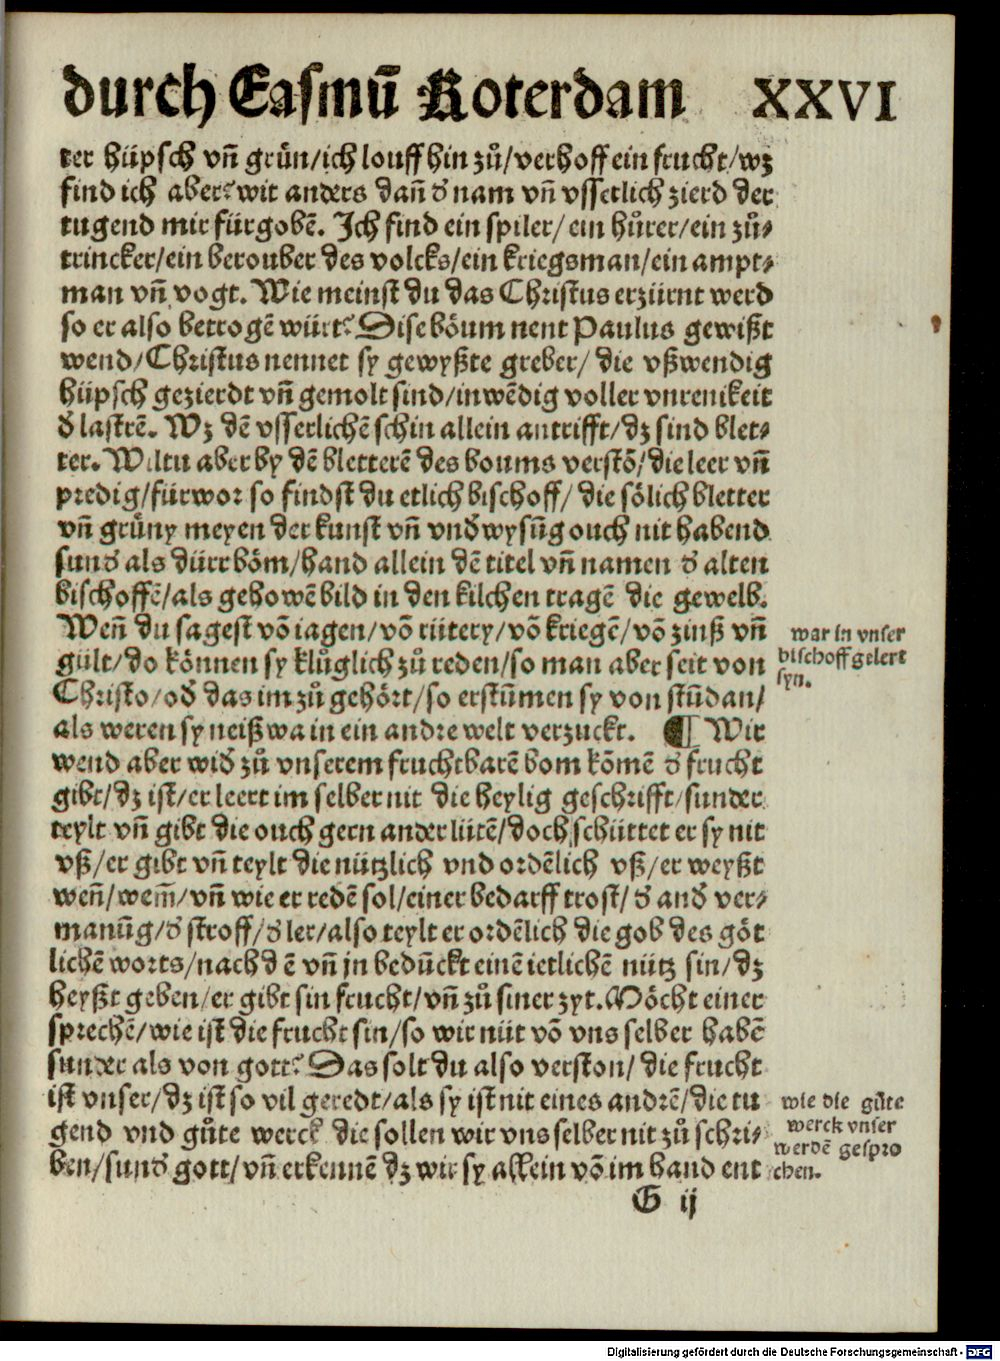 durch Easmū Roterdam XXVI
ter hüpsch vn̄ grün/ich louff hin zů/verhoff ein frucht/wz
find ich aber? wit anders dan̄ d' nam vn̄ vssetlich zierd der
tugend mir fürgobē. Ich find ein spiler/ ein hůrer/ein zů-
trincker/ein berouber des volcks/ein kriegsman/ein ampt-
man vn̄ vogt. Wie meinst du das Christus erzürnt werd
so er also betrogē würt? Dise böum nent Paulus gewißt
wend/Christus nennet sy gewyßte greber/ die vßwendig
hüpsch gezierdt vn̄ gemolt sind/inwēdig voller vnrenikeit
d' lastrē. Wz dē vsserlichē schin allein antrifft/dz sind blet-
ter. Wiltu aber by dē bletterē des boums verstō/die leer vn̄
predig/fürwor so findst du etlich bischoff/ die sölich bletter
vn̄ grüny meyen der kunst vn̄ vnd'wysūg ouch nit habend
sund' als dürr böm/hand allein dē titel vn̄ namen d' alten
bischoffē/als gehowē bild in den kilchen tragē die gewelb.
Wen̄ du sagest vō iagen/vō rütery/vō kriegē/vō zinß vn̄
gült/do können sy klůglich zů reden/so man aber seit von
Christo/od' das im zů gehört/so erstūmen sy von stūdan/
als weren sy neiß wa in ein andre welt verzuckt. ¶ Wir
wend aber wid' zů vnserem fruchtbarē bom kōmē d' frucht
gibt/dz ist/er leert im selber nit die heylig geschrifft/sunder
teylt vn̄ gibt die ouch gern ander lütē/doch schüttet er sy nit
vß/er gibt vn̄ teylt die nützlich vnd ordēlich vß/er weyßt
wen̄/wem̄/vn̄ wie er redē sol/einer bedarff trost/d' and' ver-
manūg/d' stroff/d' ler/also teylt er ordēlich die gob des göt
lichē worts/nach dē vn̄ jn bedūckt einē ietlichē nütz sin/dz
heyßt geben/er gibt sin frucht/vn̄ zů siner zyt. Möcht einer
sprechē/wie ist die frucht sin/so wir nüt vō vns selber habē
sunder als von gott? Das solt du also verston/ die frucht
ist vnser/dz ist so vil geredt/als sy ist nit eines andrē/die tu
gend vnd gůte werck die sollen wir vns selber nit zů schri-
ben/sund' gott/vn̄ erkennē dz wir sy allein vō im hand ent
G ij
war in vnser
bischoff gelert
syn.
wie die gůte
werck vnser
werdē gespro
chen.
Digitalisierung gefördert durch die Deutsche Forschungsgemeinschaft - DFG